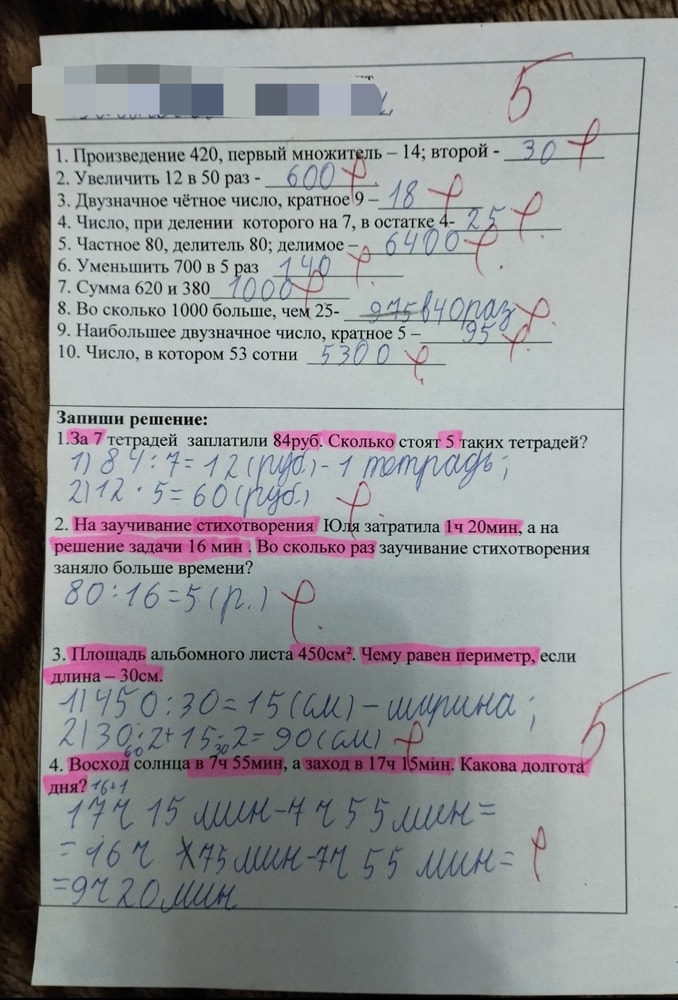 5
1. Произведение 420, первый множитель – 14; второй - 30
2. Увеличить 12 в 50 раз - 600
3. Двузначное чётное число, кратное 9 – 18
4. Число, при делении которого на 7, в остатке 4- 25
5. Частное 80, делитель 80; делимое – 6400
6. Уменьшить 700 в 5 раз 140
7. Сумма 620 и 380 1000
8. Во сколько 1000 больше, чем 25- 975 в 40 раз
9. Наибольшее двузначное число, кратное 5 – 95
10. Число, в котором 53 сотни 5300
Запиши решение:
1.За 7 тетрадей заплатили 84руб. Сколько стоят 5 таких тетрадей?
1) 84:7=12(руб.)-1 тетрадь;
2)12·5=60(руб.)
2. На заучивание стихотворения Юля затратила 1ч 20мин, а на
решение задачи 16 мин . Во сколько раз заучивание стихотворения
заняло больше времени?
80:16=5(р.)
3. Площадь альбомного листа 450см². Чему равен периметр, если
длина – 30см.
1)450:30=15(см)-ширина;
2)30·2+15·2=90(см)
60 30
5
4. Восход солнца в 7ч 55мин, а заход в 17ч 15мин. Какова долгота
дня? 16+1
17ч 15 мин-7ч 55мин=
=16ч 75мин-7ч 55 мин=
=9ч20мин